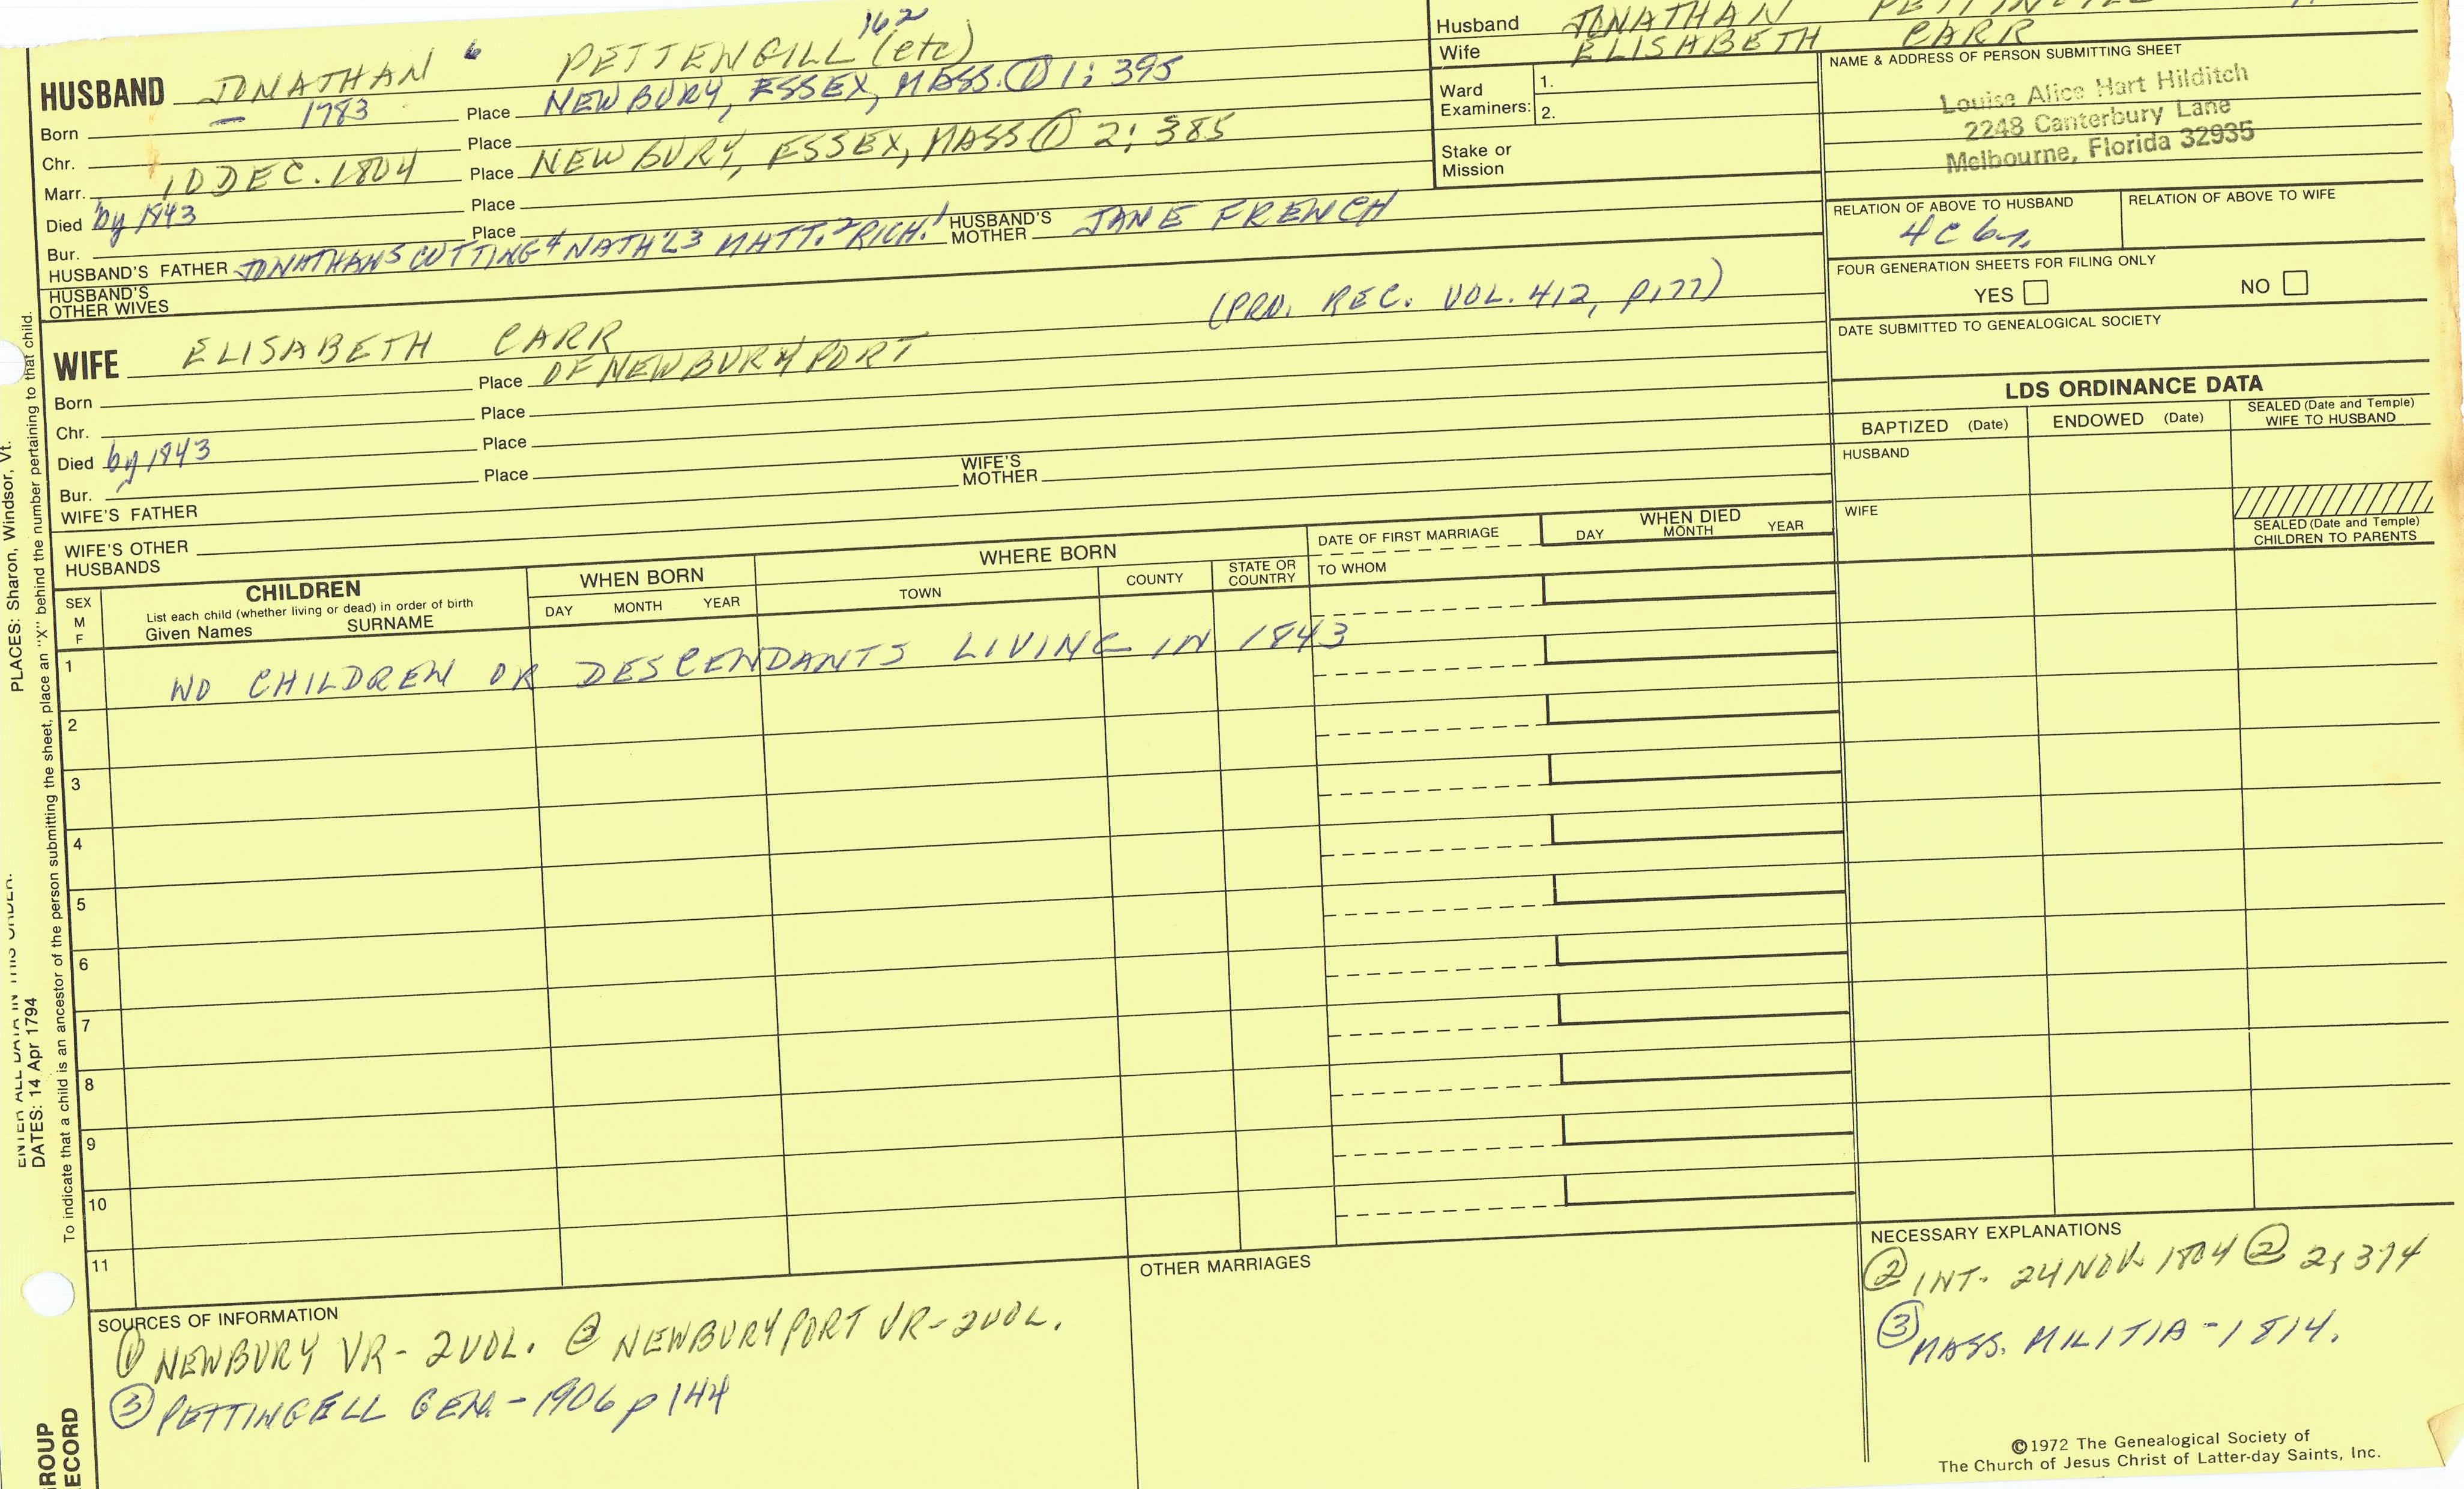 162
HUSBAND JONATHAN 6 PETTENGILL (etc)
Born — 1783 Place NEWBURY, ESSEX, MASS. ① 1; 395
Chr. Place
Marr. 10 DEC. 1804 Place NEWBURY, ESSEX, MASS ① 2; 385
Died by 1843 Place
Bur. Place
HUSBAND'S FATHER JONATHAN5 CUTTING4 NATH'L3 MATT.2 RICH.1 HUSBAND'S MOTHER JANE FRENCH
HUSBAND'S
OTHER WIVES
(PRO. REC. VOL. 412, P177)
WIFE ELISABETH CARR
Born Place OF NEWBURYPORT
Chr. Place
Died by 1843 Place
Bur. Place
WIFE'S FATHER WIFE'S MOTHER
WIFE'S OTHER
HUSBANDS
Husband JONATHAN
Wife ELISABETH CARR
Ward
Examiners: 1.
2.
Stake or
Mission
NAME & ADDRESS OF PERSON SUBMITTING SHEET
Louise Alice Hart Hilditch
2248 Canterbury Lane
Melbourne, Florida 32935
RELATION OF ABOVE TO HUSBAND RELATION OF ABOVE TO WIFE
4 C 6
FOUR GENERATION SHEETS FOR FILING ONLY
YES NO
DATE SUBMITTED TO GENEALOGICAL SOCIETY
LDS ORDINANCE DATA
BAPTIZED (Date) ENDOWED (Date) SEALED (Date and Temple)
WIFE TO HUSBAND
HUSBAND
WIFE
SEALED (Date and Temple)
CHILDREN TO PARENTS
SEX
M
F
CHILDREN
List each child (whether living or dead) in order of birth
Given Names SURNAME
WHEN BORN
DAY MONTH YEAR
WHERE BORN
TOWN COUNTY STATE OR
COUNTRY
DATE OF FIRST MARRIAGE
TO WHOM
WHEN DIED
DAY MONTH YEAR
1 NO CHILDREN OR DESCENDANTS LIVING IN 1843
2
3
4
5
6
7
8
9
10
11
SOURCES OF INFORMATION
① NEWBURY VR - 2 VOL. ② NEWBURYPORT VR - 2 VOL.
③ PETTINGELL GEN. - 1906 p 144
OTHER MARRIAGES
NECESSARY EXPLANATIONS
② INT. 24 NOV. 1804 ② 2; 374
③ MASS. MILITIA - 1814.
©1972 The Genealogical Society of
The Church of Jesus Christ of Latter-day Saints, Inc.
PLACES: Sharon, Windsor, Vt.
ENTER ALL DATA IN THIS ORDER:
DATES: 14 Apr 1794
To indicate that a child is an ancestor of the person submitting the sheet, place an "X" behind the number pertaining to that child.
ROUP
ECORD